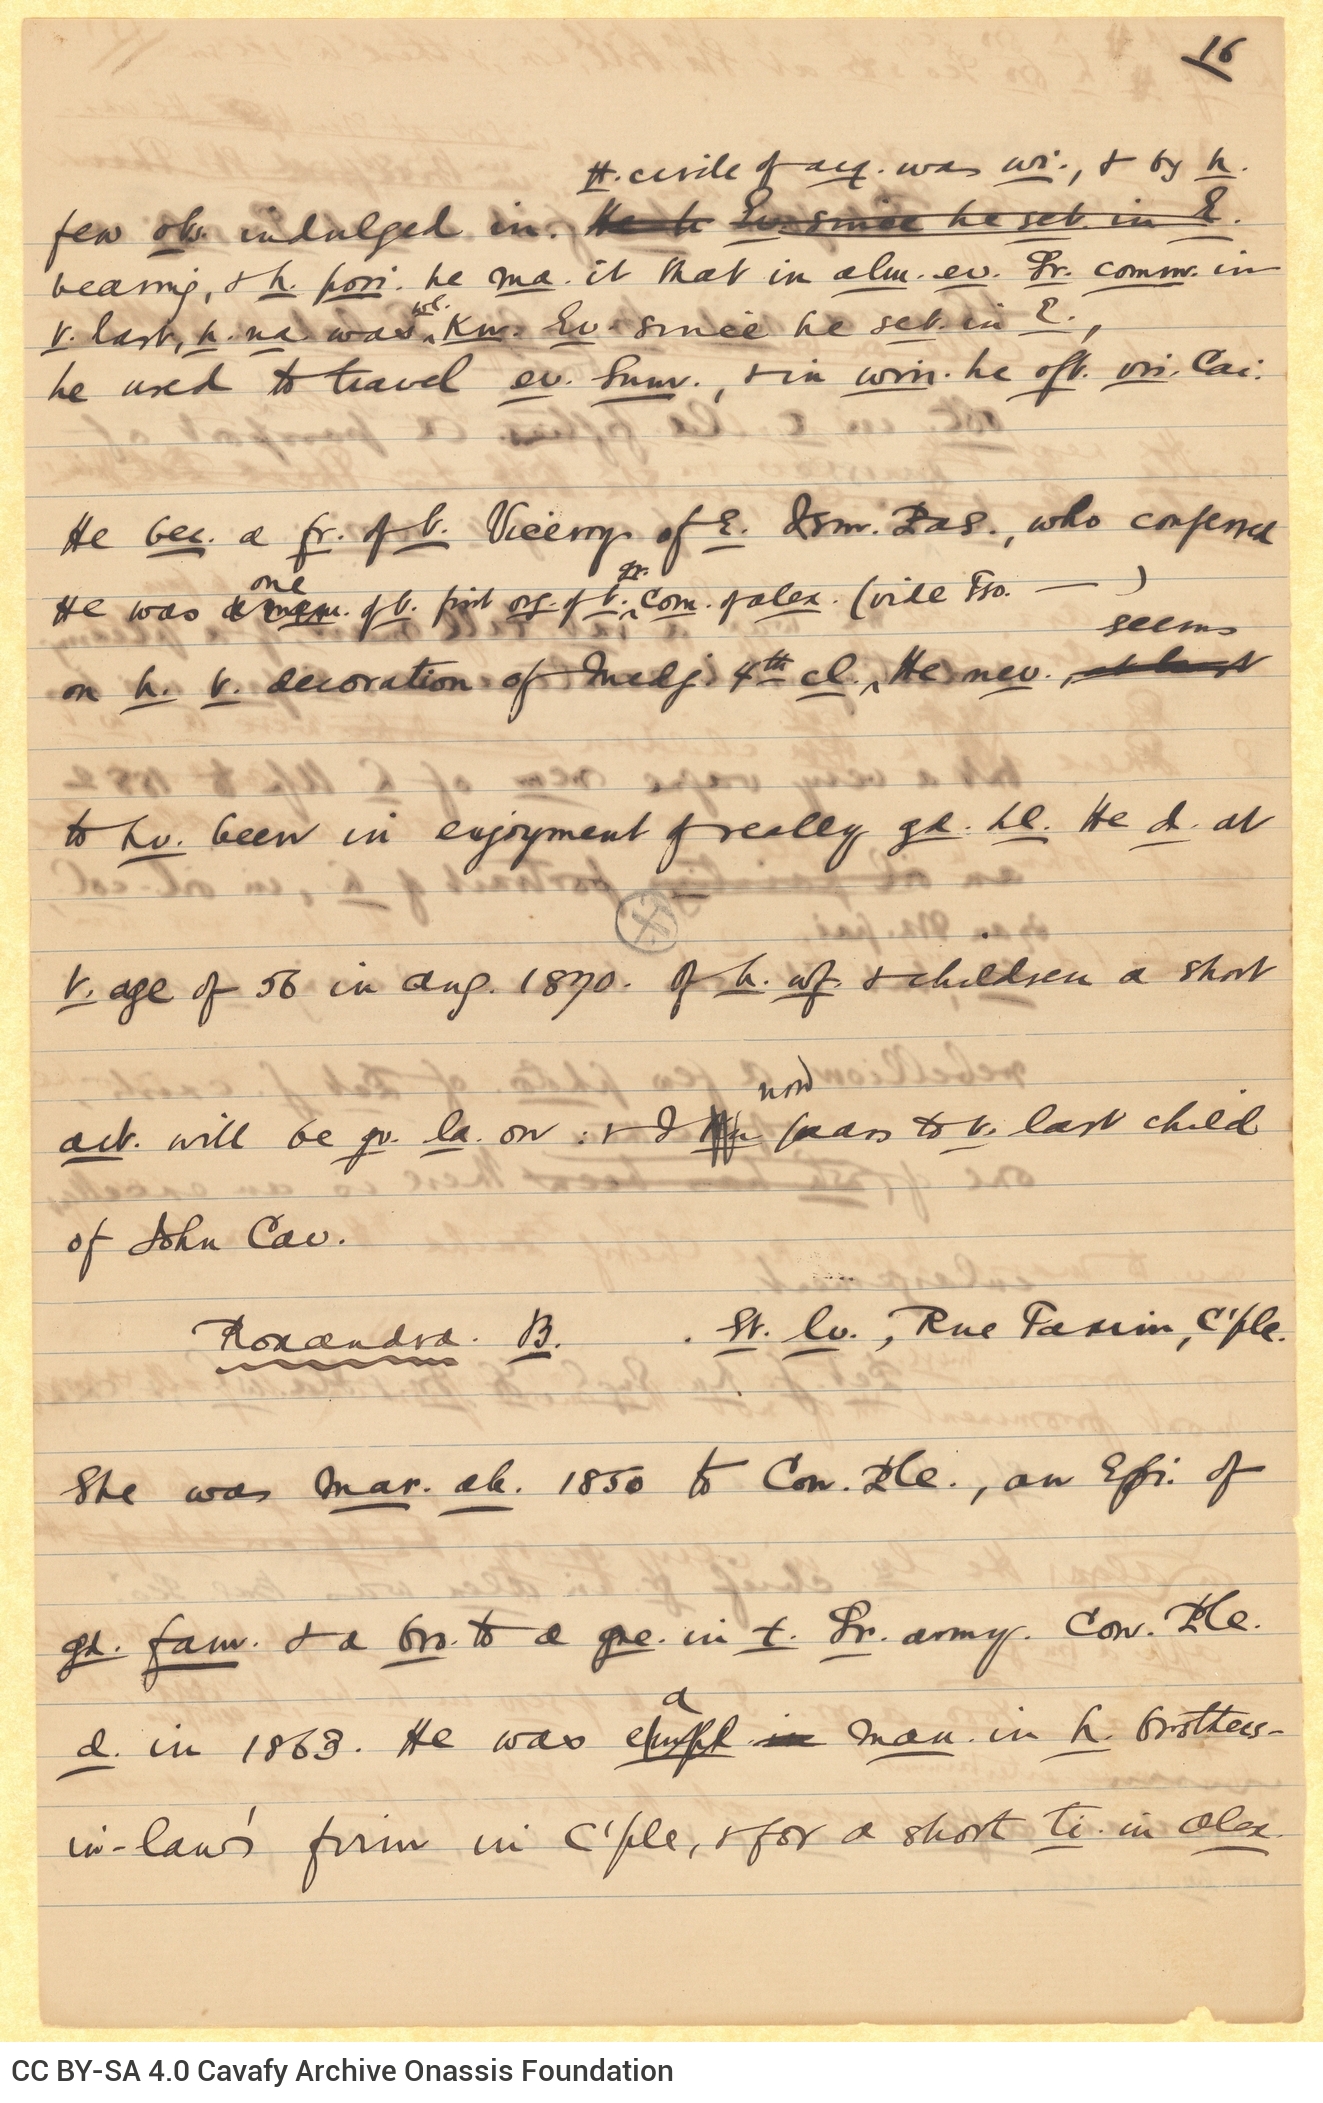 16
H. circle of acq. was wi., & by h.
few ot. indulged in. He h Ev. since he set. in E.
bearing, & h. posi. he ma. it that in alm. ev. Gr. comm. in
t. last, h. na. was wl. Kn. Ev. since he set. in E.,
he used to travel ev. Sum., & in win. he oft. vi. Cai.
He bec. a fr. of t. Viceroy of E. Ism. Pas., who conferred
one gr.
He was a mem. of t. first org. of t. Com. of Alex. (vide Tso. — )
seems
on h. t. decoration of Medj. 4th cl. He nev. at least
to hv. been in enjoyment of really gd. hl. He d. at
t. age of 56 in Aug. 1870. Of h. wf. & children a short
now
act. will be gv. la. on : & I pass to t. last child
of John Cav.
Roxandra B. . St. lv., Rue Taxim, C'ple.
She was mar. ab. 1850 to Con. Ple., an Epi. of
gd. fam. & a bro. to a gne. in t. Gr. army. Con. Ple.
a
d. in 1863. He was empl. in man. in h. brothers-
in-law's firm in C'ple, & for a short ti. in Alex.
CC BY-SA 4.0 Cavafy Archive Onassis Foundation